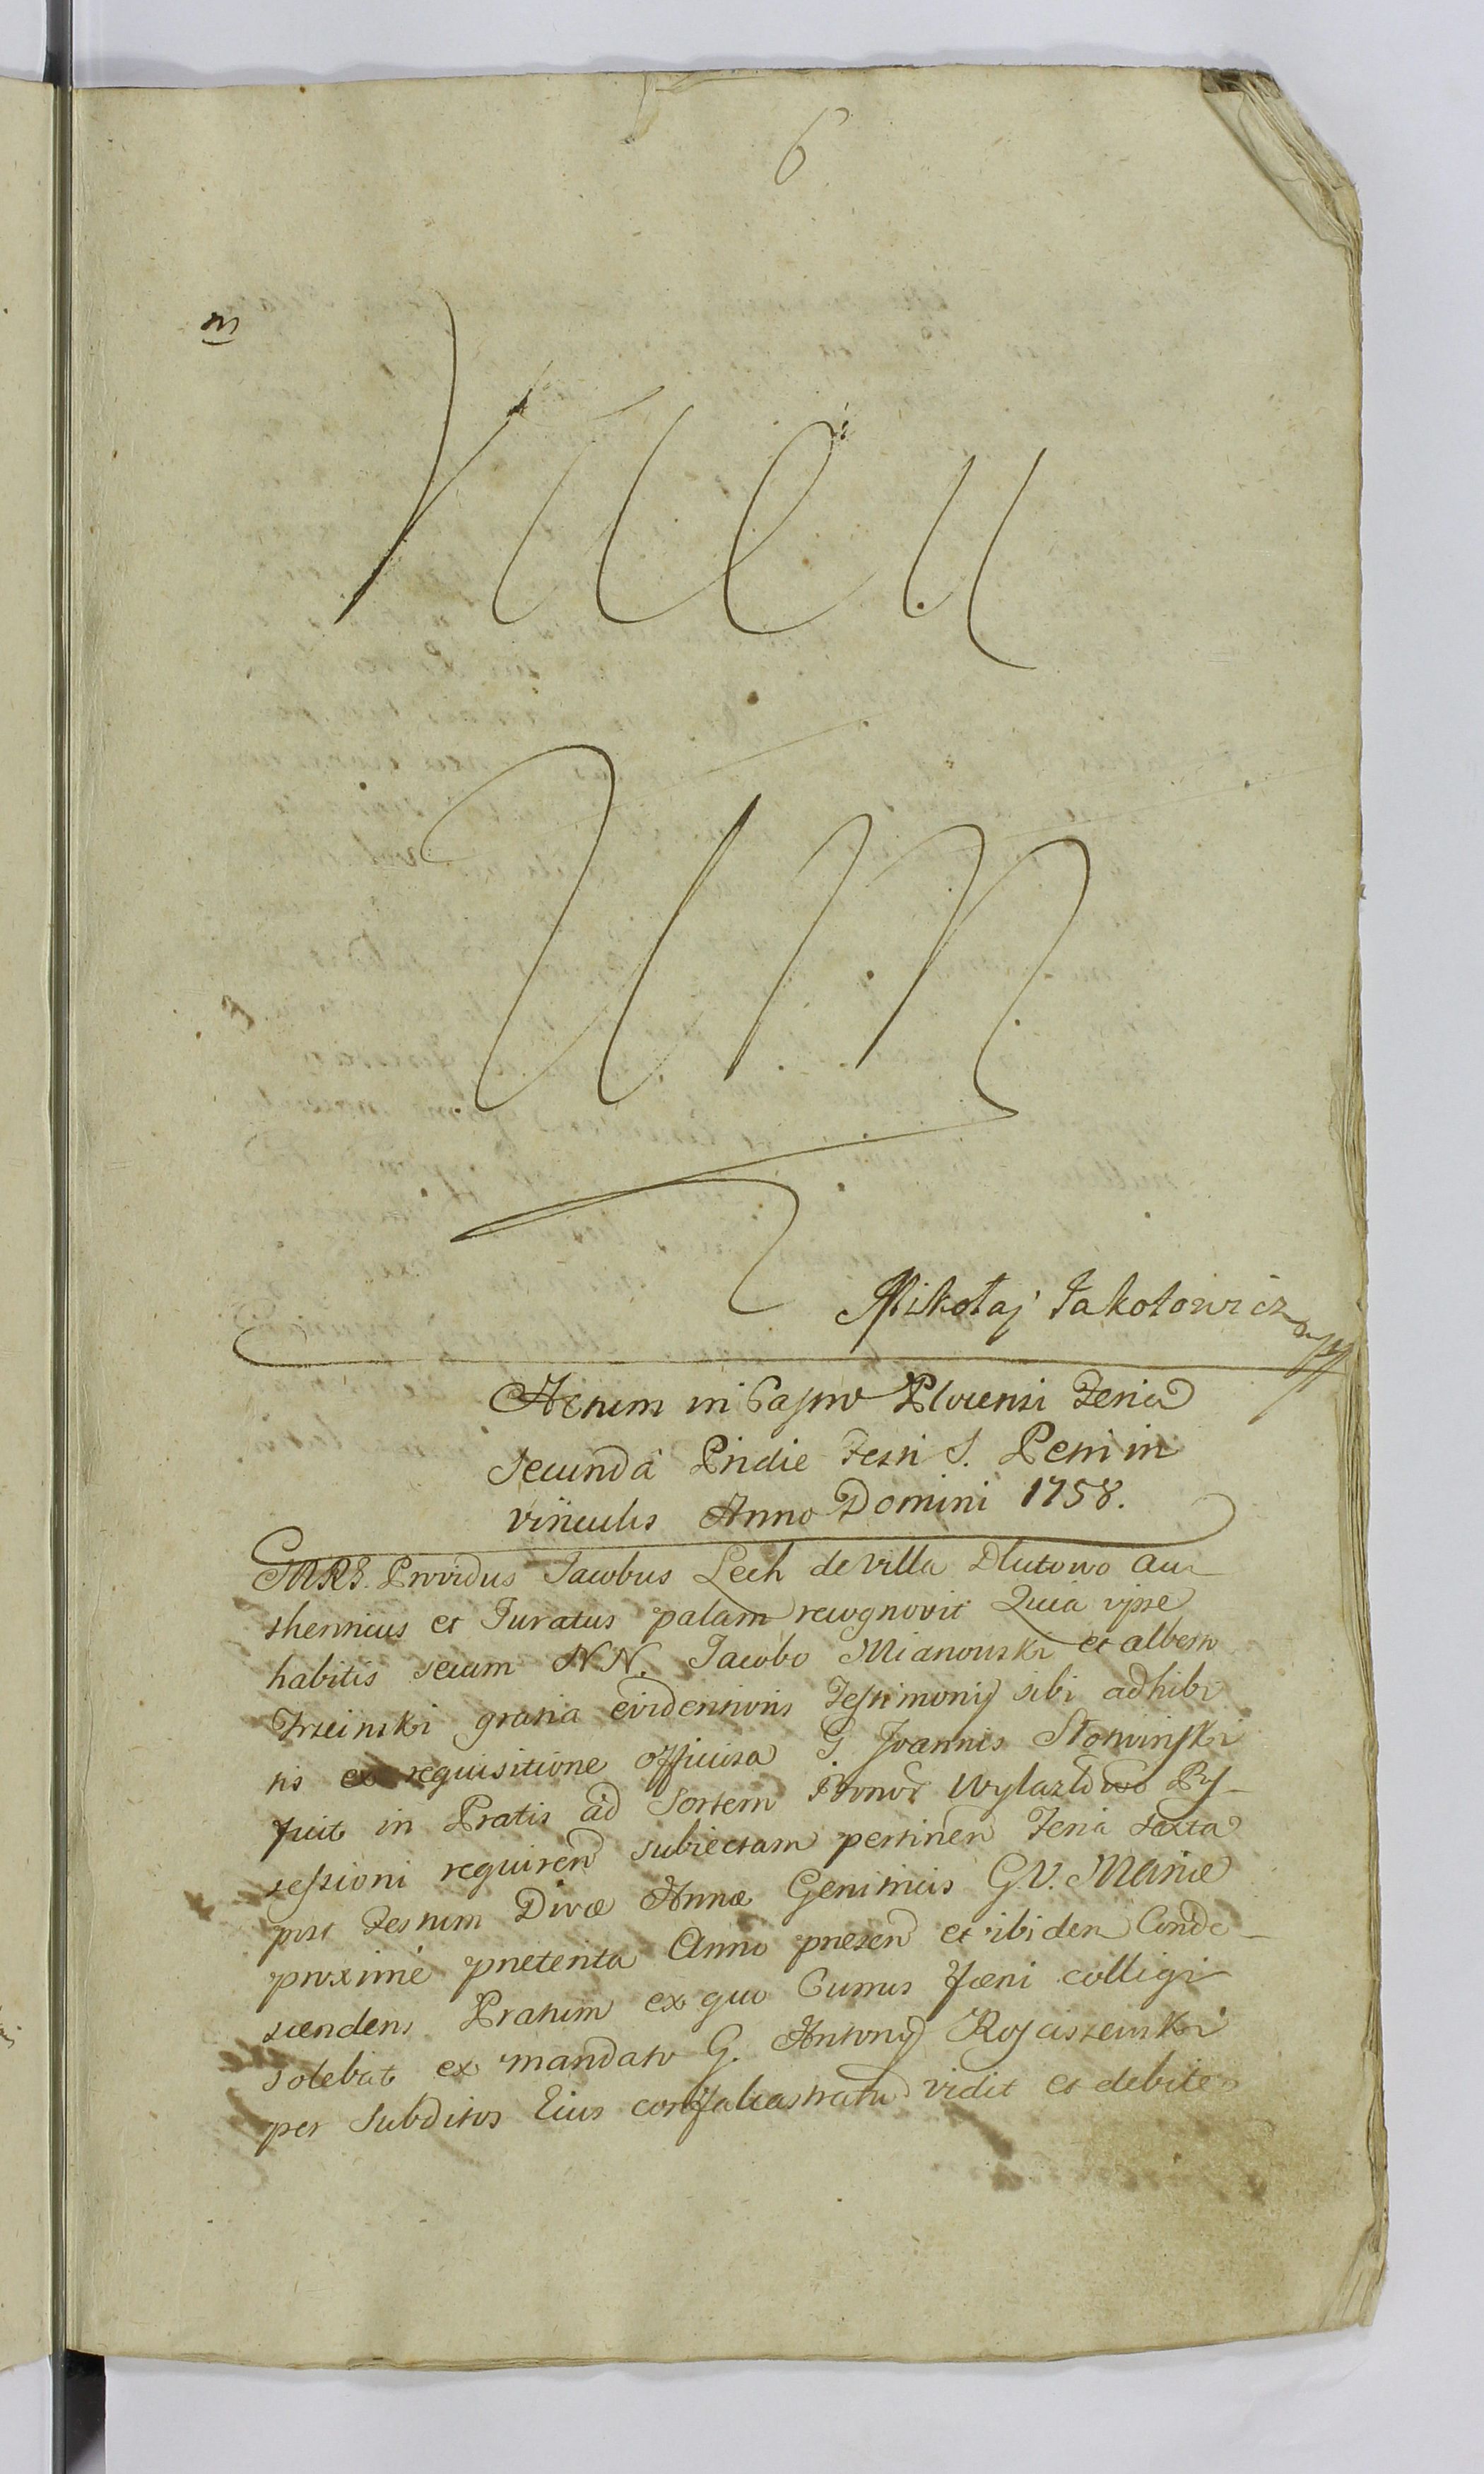 6
m
Mikołaj Jakołowicz
Actum in Castro Plocensi Feria
secunda Pridie Festi S. Petri in
vinculis Anno Domini 1758.
MRS. Providus Jacobus Lech de Villa Dlutowo au
thenticus et Juratus palam recognovit Quia ipse
habitis secum NN. Jacobo Mianowski et alberto
Trzcinski gratia evidentioris Testimonij sibi adhibi
tis ex requisitione officiosa G. Joannis Słowinski
fuit in Pratis ad Sortem Bonor Wylazłowo Po
sessioni requiren subiectam pertinen Feria sexta
post Festum Divæ Annæ Genitricis G V. Mariæ
proximé præterita Anno præsen et ibidem Conde
scendens Pratum ex quo Currus fæni colligi
solebat ex mandato G. Antonij Rosciszewski
per subditos Eius confalcastratu vidit et debite